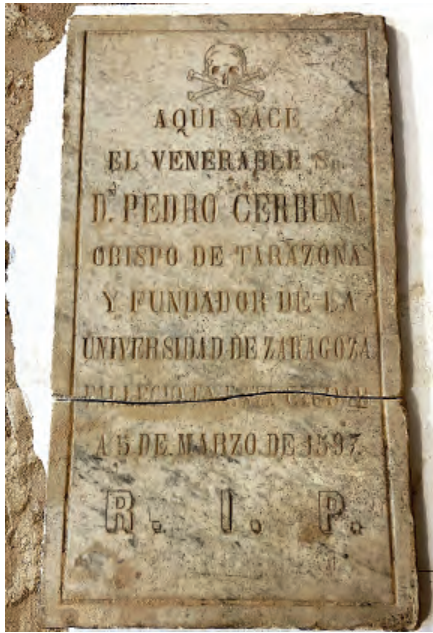 AQUI YACE
EL VENERABLE Sr.
D. PEDRO CERBUNA,
OBISPO DE TARAZONA
Y FUNDADOR DE LA
UNIVERSIDAD DE ZARAGOZA
FALLECIO EN ESTA
A 5 DE MARZO DE 1597.
R. I. P.